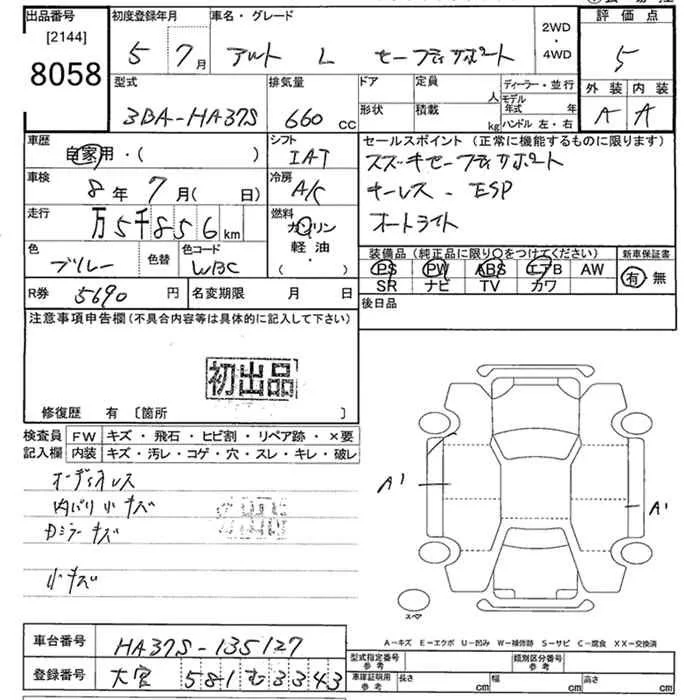 出品番号 初度登録年月 車名・グレード 2WD・4WD 評価点
[2144]
8058 5年 7月 アルト L セーフティサポート 5
型式 排気量 ドア 定員 人 ディーラー・並行 外装 内装
3BA-HA37S 660cc 形状 積載 kg モデル年式 年 ハンドル 左・右 A A
車歴 自家用・( ) シフト IAT セールスポイント (正常に機能するものに限ります)
車検 8年 7月( 日) 冷房 A/C スズキセーフティサポート
走行 万5千856km 燃料 ガソリン 軽油・( ) キーレス - ESP
オートライト
色 ブルー 色替 色コード WBC 装備品 (純正品に限り○をつけてください) 新車保証書
PS PW ABS エアB AW 有・無
SR ナビ TV カワ
R券 5690円 名変期限 月 日 後日品
注意事項申告欄(不具合内容等は具体的に記入して下さい)
初出品
修復歴 有 [箇所 ]
検査員 FW キズ・飛石・ヒビ割・リペア跡・×要
記入欄 内装 キズ・汚レ・コゲ・穴・スレ・キレ・破レ
オーディオレス
内バリ小キズ
Dミラーキズ
小キズ
A1
A1
スペア
A-キズ E-エクボ U-凹み W-補修跡 S-サビ C-腐食 XX-交換済
車台番号 HA37S-135127
型式指定番号 参考 類別区分番号 参考
登録番号 大宮 581 む 3343
車庫証明用 参考 長さ cm 幅 cm 高さ cm